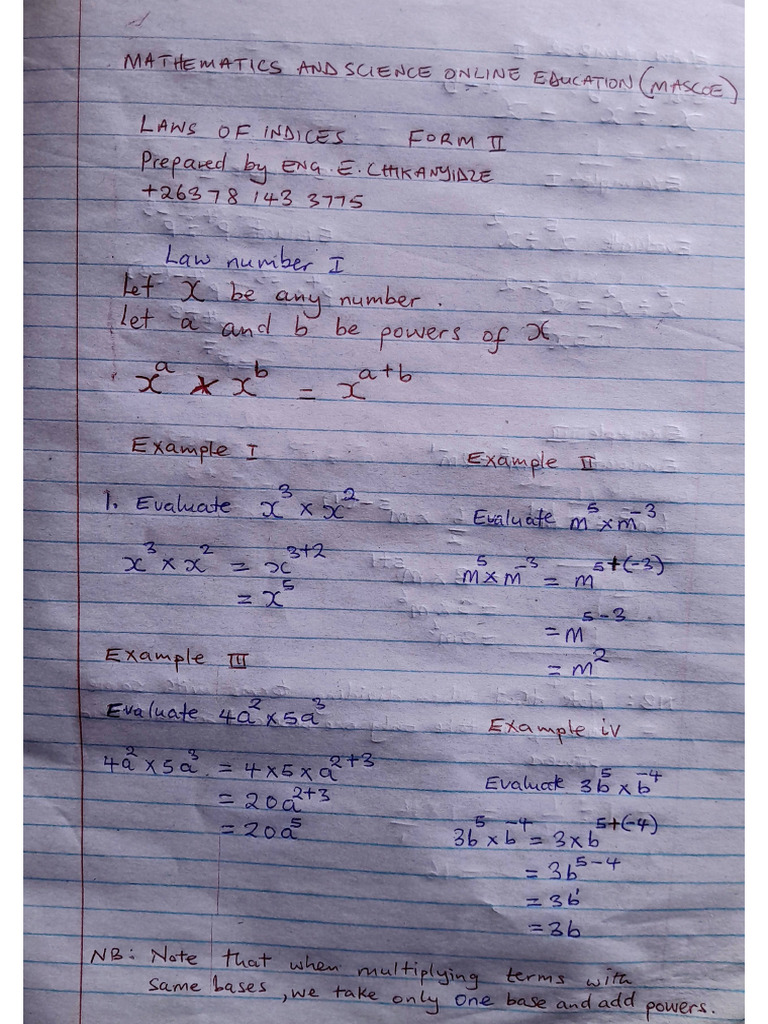 MATHEMATICS AND SCIENCE ONLINE EDUCATION (MASCOE)
LAWS OF INDICES FORM II
Prepared by ENG. E. CHIKANYIDZE
+263 78 143 3775
Law number I
Let x be any number.
Let a and b be powers of x
x^a × x^b = x^(a+b)
Example I
1. Evaluate x^3 × x^2
x^3 × x^2 = x^(3+2)
= x^5
Example II
Evaluate m^5 × m^-3
m^5 × m^-3 = m^(5+(-3))
= m^(5-3)
= m^2
Example III
Evaluate 4a^2 × 5a^3
4a^2 × 5a^3 = 4×5×a^(2+3)
= 20a^(2+3)
= 20a^5
Example iv
Evaluate 3b^5 × b^-4
3b^5 × b^-4 = 3×b^(5+(-4))
= 3b^(5-4)
= 3b^1
= 3b
NB: Note that when multiplying terms with
same bases, we take only one base and add powers.